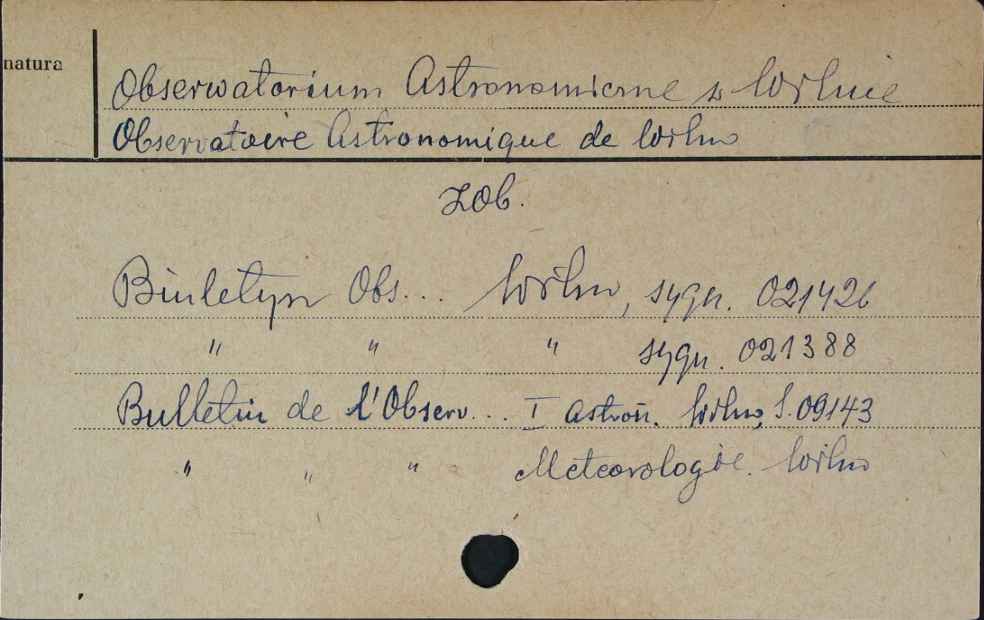 natura
Obserwatorium Astronomiczne w Wilnie
Observatoire Astronomique de Wilno
zob.
Biuletyn Obs... Wilno, sygn. 021426
" " " sygn. 021388
Bulletin de l'Observ... I Astron. Wilno, S. 09143
" " " Meteorologie. Wilno